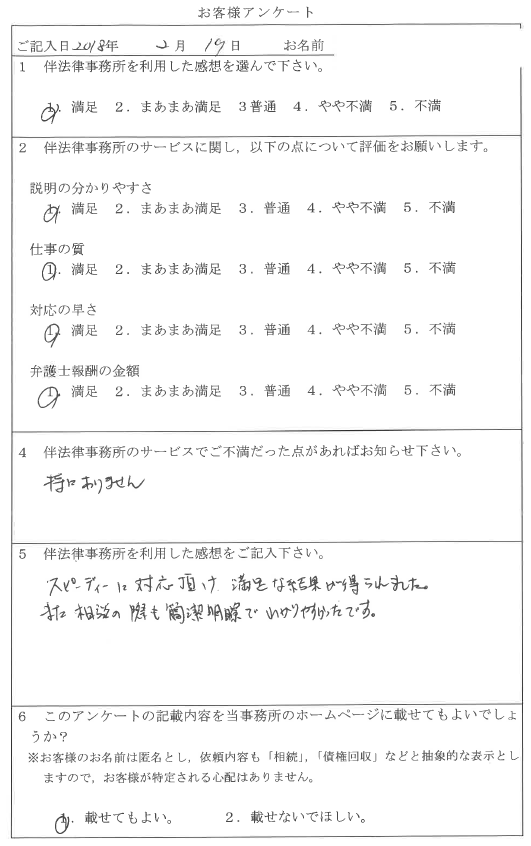 お客様アンケート
ご記入日2018年 2月 19日 お名前
1 伴法律事務所を利用した感想を選んで下さい。
1．満足 2．まあまあ満足 3普通 4．やや不満 5．不満
2 伴法律事務所のサービスに関し，以下の点について評価をお願いします。
説明の分かりやすさ
1．満足 2．まあまあ満足 3．普通 4．やや不満 5．不満
仕事の質
1．満足 2．まあまあ満足 3．普通 4．やや不満 5．不満
対応の早さ
1．満足 2．まあまあ満足 3．普通 4．やや不満 5．不満
弁護士報酬の金額
1．満足 2．まあまあ満足 3．普通 4．やや不満 5．不満
4 伴法律事務所のサービスでご不満だった点があればお知らせ下さい。
特にありません
5 伴法律事務所を利用した感想をご記入下さい。
スピーディーに対応頂け 満足な結果が得られました。
また 相談の際も簡潔明瞭で わかりやすかったです。
6 このアンケートの記載内容を当事務所のホームページに載せてもよいでしょ
うか？
※お客様のお名前は匿名とし，依頼内容も「相続」，「債権回収」などと抽象的な表示とし
ますので，お客様が特定される心配はありません。
1．載せてもよい。 2．載せないでほしい。